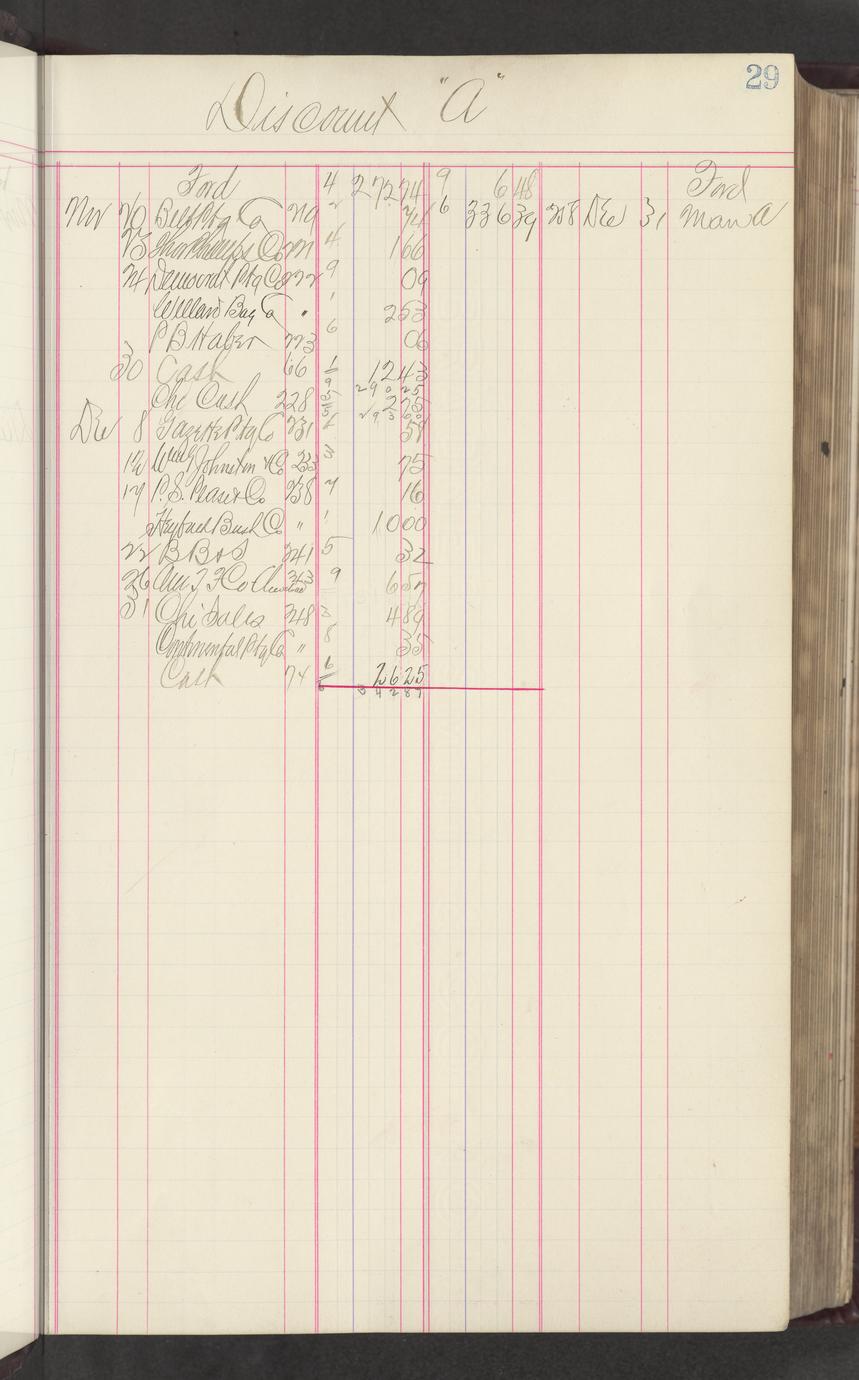 29
Discount "A"
Ford 4 272 74 9 6 48 Ford
Nov 20 Belf Ptg Co 219 2 74 6 336 39 248 Dec 31 Man A
23 4 1 66
24 Democrat Ptg Co 222 9 09
Willard Bag Co " 1 2 53
P B Haber 223 6 06
30 Cash 66 1 12 43
290 25
Chi Cash 228 2 75
293 00
Dec 8 Gazette Ptg Co 231 58
12 Wm G Johnston & Co 233 3 75
17 P. S. Pease & Co 238 7 16
Hayford Bush Co " 1 10 00
22 B B & S 241 5 32
26 Am T F Co 243 9 6 57
31 Chi Sales 248 3 4 89
Continental Ptg Co " 8 35
Cash 74 6 26 25
6 342 87